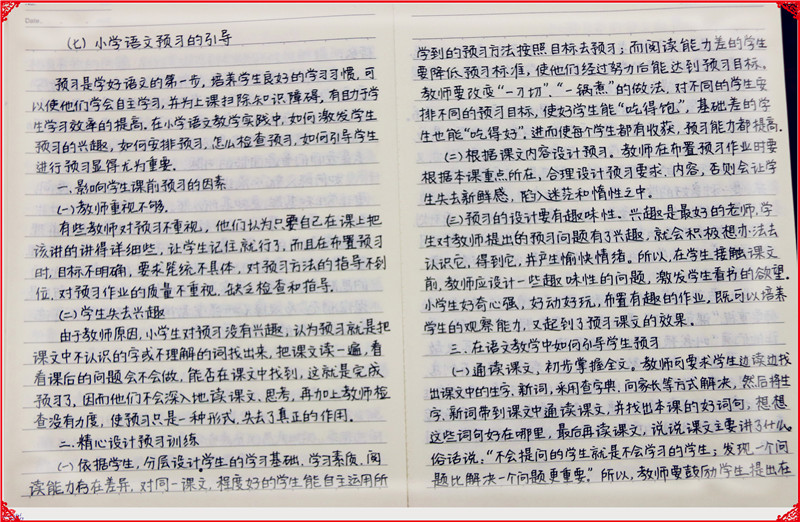 Date.
(七)小学语文预习的引导
预习是学好语文的第一步,培养学生良好的学习习惯,可
以使他们学会自主学习,并为上课扫除知识障碍,有助于学
生学习效率的提高。在小学语文教学实践中,如何激发学生
预习的兴趣,如何安排预习,怎么检查预习,如何引导学生
进行预习显得尤为重要。
一.影响学生课前预习的因素
(一)教师重视不够。
有些教师对预习不重视,他们认为只要自己在课上把
该讲的讲得详细些,让学生记住就行了,而且在布置预习
时,目标不明确,要求笼统不具体,对预习方法的指导不到
位,对预习作业的质量不重视,缺乏检查和指导。
(二)学生失去兴趣
由于教师原因,小学生对预习没有兴趣,认为预习就是把
课文中不认识的字或不理解的词找出来,把课文读一遍,看
看课后的问题会不会做,能否在课文中找到,这就是完成
预习了,因而他们不会深入地读课文、思考,再加上教师检
查没有力度,使预习只是一种形式,失去了真正的作用。
二.精心设计预习训练
(一)依据学生,分层设计学生的学习基础,学习素质,阅
读能力存在差异,对同一课文,程度好的学生能自主运用所
学到的预习方法按照目标去预习;而阅读能力差的学生
要降低预习标准,使他们经过努力后能达到预习目标。
教师要改变“一刀切”、“一锅煮”的做法,对不同的学生安
排不同的预习目标,使好学生能“吃得饱”,基础差的学
生也能“吃得好”,进而使每个学生都有收获,预习能力都提高。
(二)根据课文内容设计预习。教师在布置预习作业时要
根据本课重点所在,合理设计预习要求、内容,否则会让学
生失去新鲜感,陷入迷茫和惰性之中。
(三)预习的设计要有趣味性。兴趣是最好的老师,学
生对教师提出的预习问题有了兴趣,就会积极想办法去
认识它,得到它,并产生愉快情绪。所以,在学生接触课文
前,教师应设计一些趣味性的问题,激发学生看书的欲望。
小学生好奇心强,好动好玩,布置有趣的作业,既可以培养
学生的观察能力,又起到了预习课文的效果。
三.在语文教学中如何引导学生预习
(一)通读课文,初步掌握全文。教师可要求学生边读边找
出课文中的生字、新词,采用查字典、问家长等方式解决,然后将生
字、新词带到课文中通读课文,并找出本课的好词句,想想
这些词句好在哪里,最后再读课文,说说课文主要讲了什么。
俗话说:“不会提问的学生就是不会学习的学生;发现一个问
题比解决一个问题更重要。”所以,教师要鼓励学生提出在